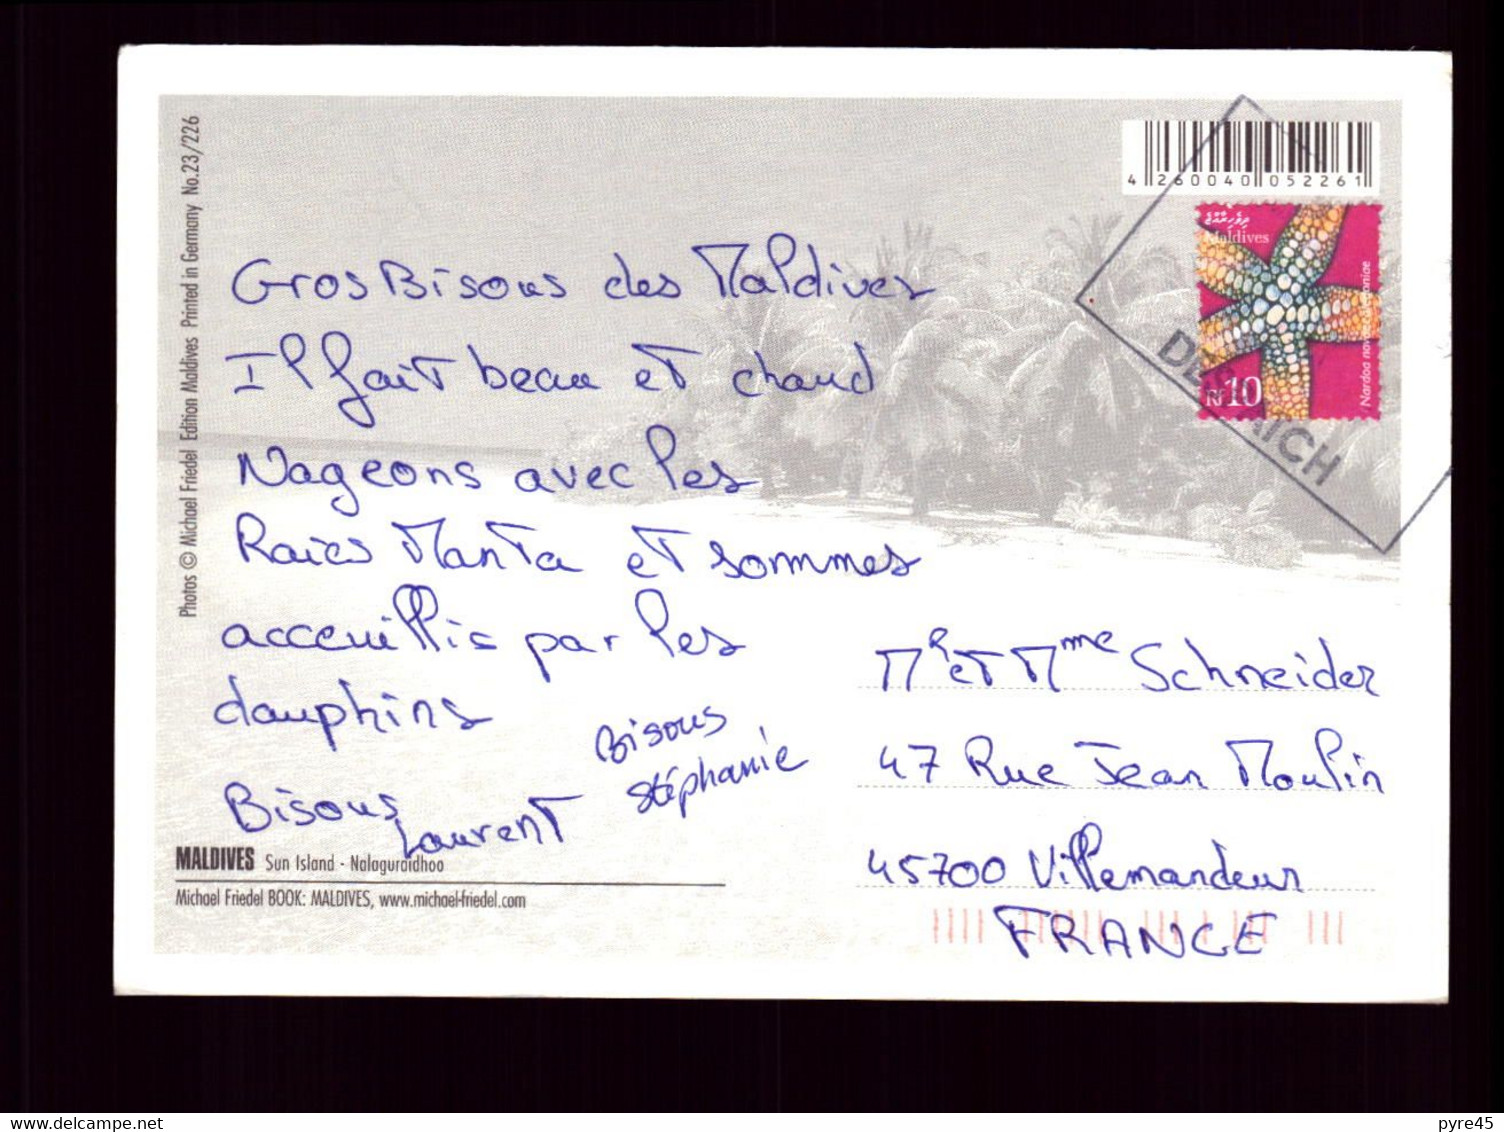 Photos © Michael Friedel Edition Maldives Printed in Germany No.23/226
4 260040 052261
Maldives
Nardoa novaecaledoniae
Rf10
Gros Bisous des Maldives
Il fait beau et chaud
Nageons avec les
Raies Manta et sommes
acceuillis par les
dauphins
Bisous
Laurent
Bisous
Stéphanie
MR et Mme Schneider
47 Rue Jean Moulin
45700 Villemandeur
FRANCE
MALDIVES Sun Island - Nalaguraidhoo
Michael Friedel BOOK: MALDIVES, www.michael-friedel.com
pyre45